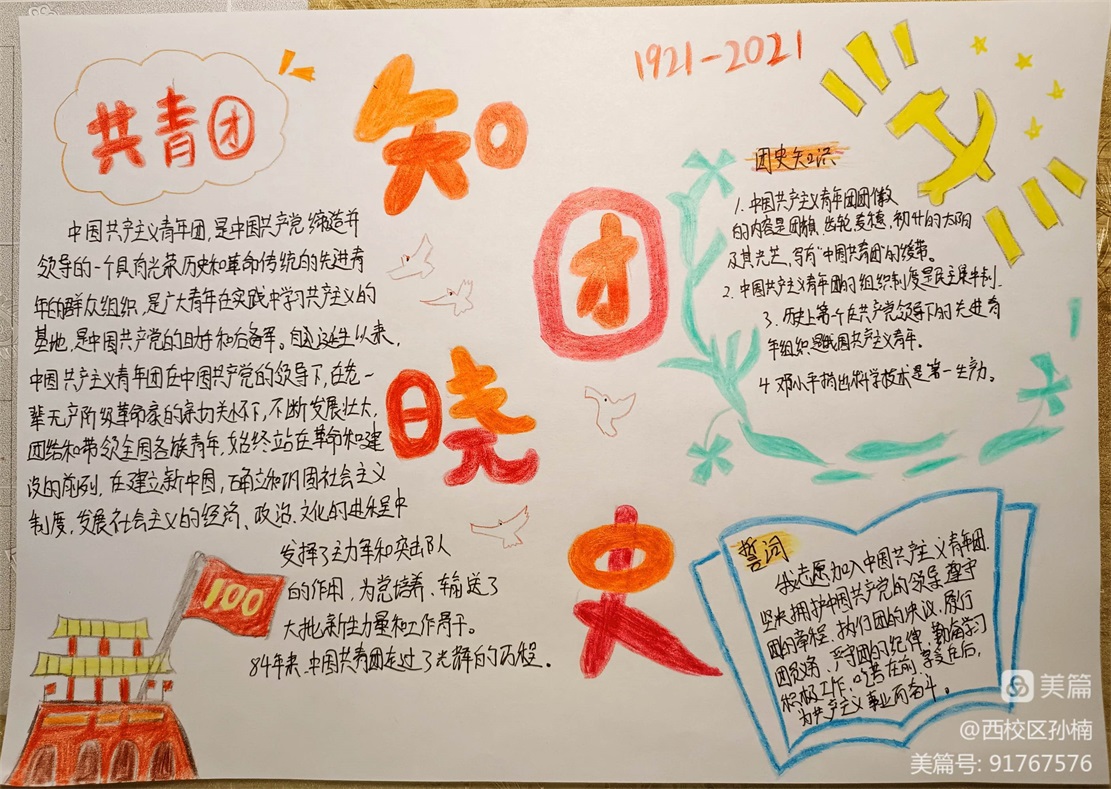 共青团
知
团
晓
史
1921-2021
中国共产主义青年团,是中国共产党缔造并
领导的一个具有光荣历史和革命传统的先进青
年的群众组织,是广大青年在实践中学习共产主义的
基地,是中国共产党的助手和后备军。自诞生以来,
中国共产主义青年团在中国共产党的领导下,在老一
辈无产阶级革命家的亲切关怀下,不断发展壮大,
团结和带领全国各族青年,始终站在革命和建
设的前列,在建立新中国,确立和巩固社会主义
制度,发展社会主义的经济、政治、文化的进程中
发挥了主力军和突击队
的作用,为党培养、输送了
大批新生力量和工作骨干。
84年来,中国共青团走过了光辉的历程。
100
团史知识
1.中国共产主义青年团团徽
的内容是团旗,齿轮,麦穗,初升的太阳
及其光芒,写有"中国共青团"的绶带。
2.中国共产主义青年团的组织制度是民主集中制.
3.历史上第一个在共产党领导下的先进青
年组织是我国共产主义青年。
4.邓小平指出科学技术是第一生产力。
誓词
我志愿加入中国共产主义青年团.
坚决拥护中国共产党的领导,遵守
团的章程,执行团的决议,履行
团员义务,严守团的纪律,勤奋学习
积极工作,吃苦在前,享受在后,
为共产主义事业而奋斗。
美篇
@西校区孙楠
美篇号: 91767576